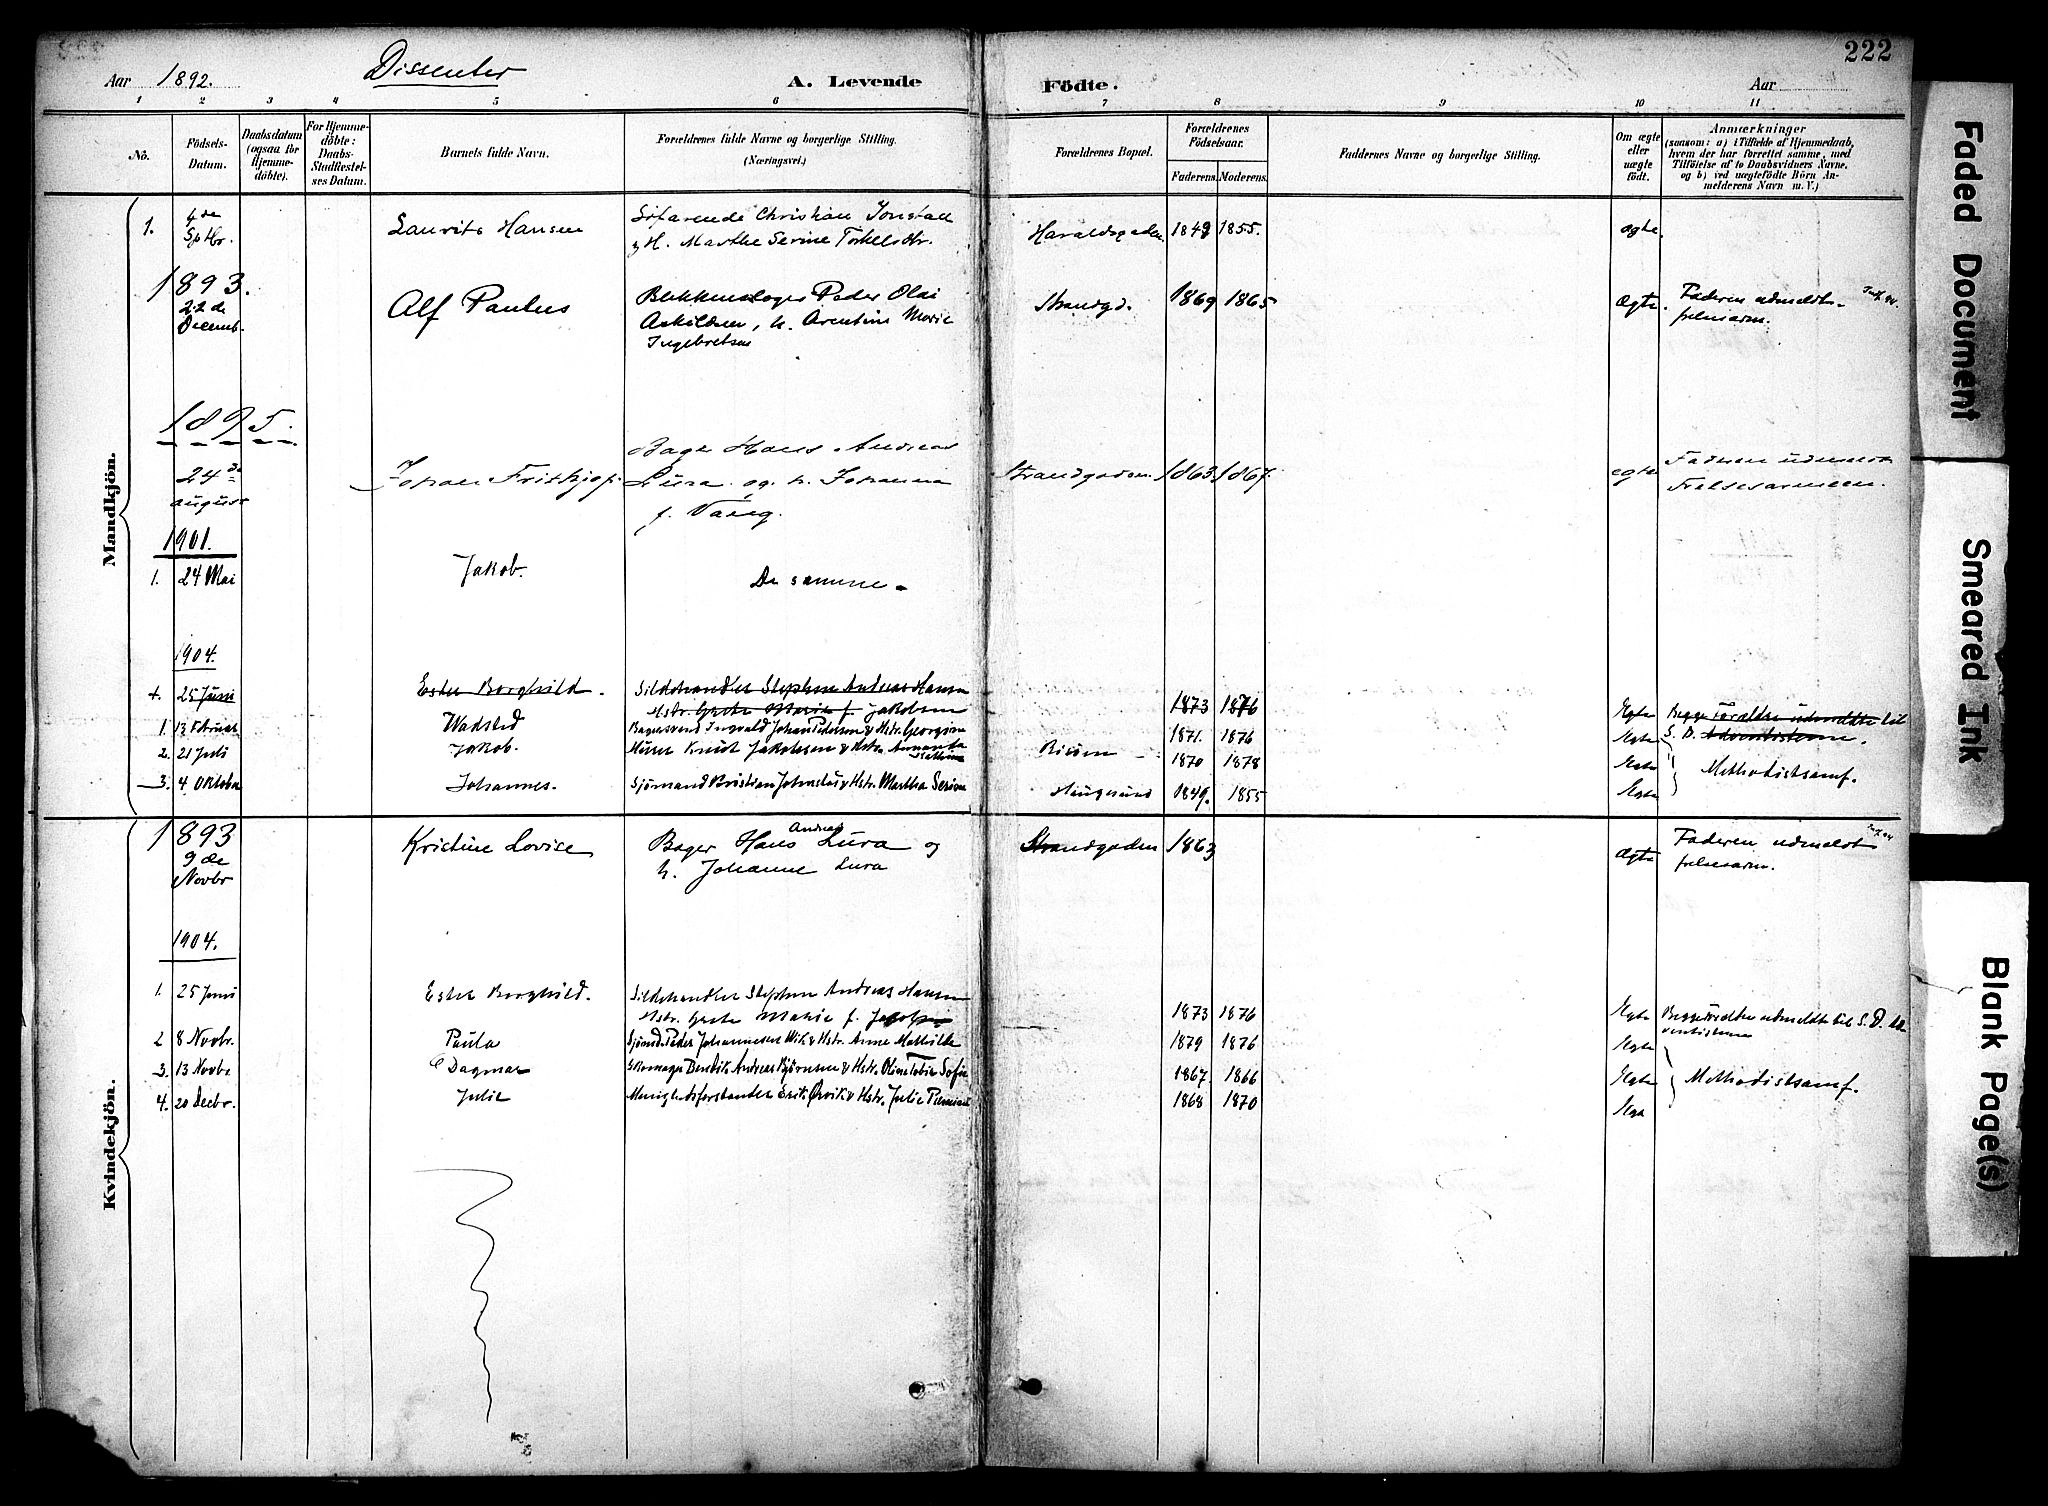 222
Aar 1892. Dissenter A. Levende Födte. Aar
1 2 3 4 5 6 7 8 9 10 11
No.
Födsels-
Datum.
Daabsdatum
(ogsaa for
Hjemme-
döbte).
For Hjemme-
döbte:
Daabs-
Stadfæstel-
ses Datum.
Barnets fulde Navn.
Forældrenes fulde Navne og borgerlige Stilling.
(Næringsvei.)
Forældrenes Bopæl.
Forældrenes
Födselsaar.
Faderens. Moderens.
Faddernes Navne og borgerlige Stilling.
Om ægte
eller
uægte
födt.
Anmærkninger
(saasom: a) i Tilfælde af Hjemmedaab,
hvem der har forrettet samme, med
Tilföielse af to Daabsvidners Navne.
og b) ved uægtefödte Börn An-
melderens Navn m. V.)
Mandkjön.
1. 4de Sptbr. Laurits Hansen Söfarende Christian
H. Marthe Serine Torkelsdtr. Haraldsgaden. 1849 1855. ægte.
1893.
22de Decemb. Alf Paulus Blikkenslager Peder Olai
Askildsen, h. Arentine Marie
Ingebretsen Strandgd. 1869 1865 Ægte. Faderen udmeldt
frelsesarm.
1895.
24de august Johan Frithjof. Bager Hans Andreas
Lura og h. Johanna
f. Vaag. Strandgaden 1863 1867. egte Faderen udmeldt
Frelsesarmeen.
1901.
1. 24 Mai Jakob. De samme.
1904.
+. 25 Juni Ester Borghild. Sildehandler Stephen Andreas Hansen
Hstr. Grete Marie f. Jakobsen 1873 1876 Egte Begge Forældre udmeldte til
S. D. Adventisterne.
1. 13 Februar Ingvald Johan Pedersen & Hstr. Georgine 1871. 1876 Egte
2. 21 Juli Jakob. Knut Jakobsen & Hstr. Amanda
Kathrine Risöen 1870 1878 Egte Methodistsamf.
3. 4 Oktober Johannes. Sjömand Kristian & Hstr. Martha Serine Haugesund 1849. 1855 Egte
Kvindekjön.
1893
9de Novbr Kristine Lovise Bager Hans Andreas Lura og
h. Johanne Lura Strandgaden 1863 Ægte Faderen udmeldt
frelsesarm.
1904.
1. 25 Juni Ester Borghild. Sildehandler Stephen Andreas Hansen
Hstr. Grete Marie f. Jacobsen 1873 1876 Egte Begge Forældre udmeldte til S. D. Ad
ventisterne
2 8 Novbr. Paula Peder Johannesen & Hstr. Anne Mathilde 1879 1876 Egte
3. 13 Novbr Dagmar Skomager Bendik Andreas Björnsen & Hstr. Oline Tobie Sofie 1867. 1866 Egte Methodistsamf.
4. 20 Decbr. Julie Menighedsforstander Erik & Hstr. Julie 1868 1870 Egte
Faded Document
Smeared Ink
Blank Page(s)